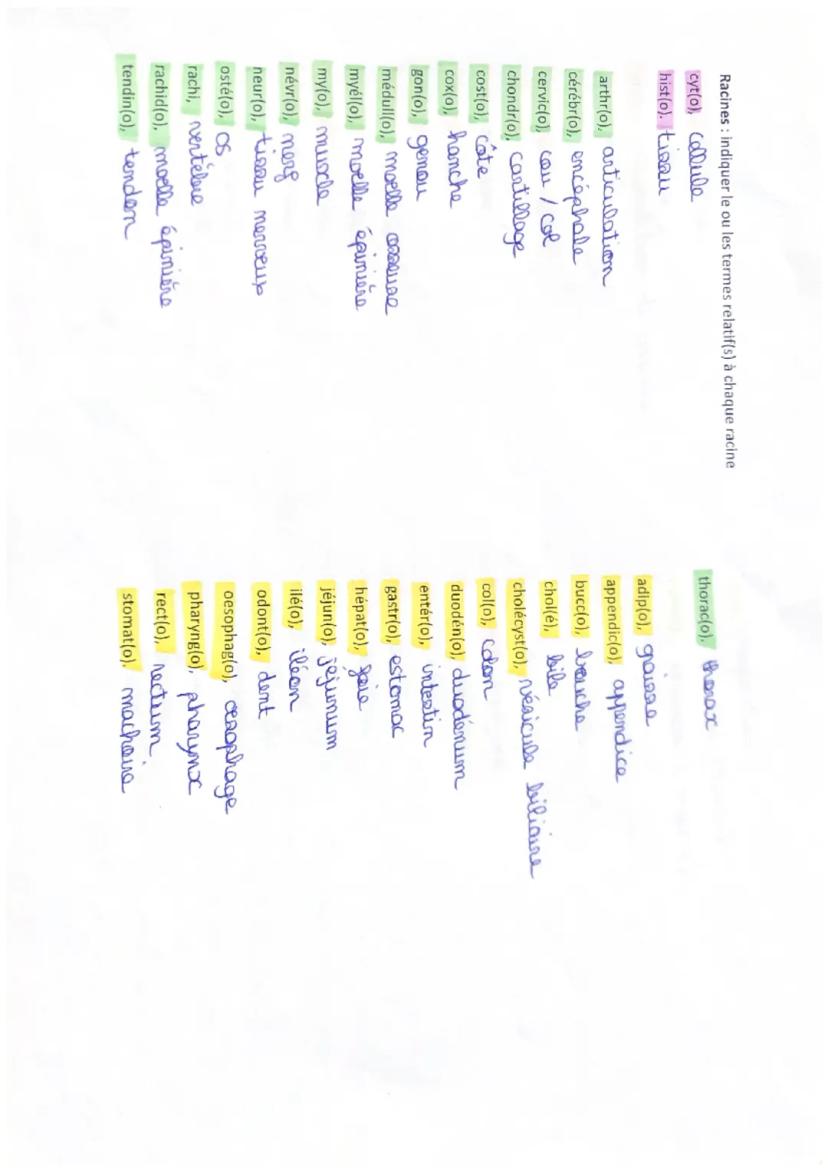 Racines : indiquer le ou les termes relatif(s) à chaque racine
cyt(o), cellule
hist(o). tissu
arthr(o), articulation
cérébr(o), encéphale
cervic(o), cou / col
chondr(o), cartillage
cost(o), côte
cox(o), hanche
gon(o), genou
médull(o), moelle osseuse
myél(o), moelle épinière
my(o), muscle
névr(o), nerf
neur(o), tissu nerveux
osté(o), os
rachi, vertèbre
rachid(o), moelle épinière
tendin(o), tendon
thorac(o), thorax
adip(o), graisse
appendic(o), appendice
bucc(o), bouche
chol(é), bile
cholécyst(o), vésicule biliaire
col(o), colon
duodén(o), duodénum
entér(o), intestin
gastr(o), estomac
hépat(o), foie
jéjun(o), jejunum
ilé(o), iléon
odont(o), dent
oesophag(o), œsophage
pharyng(o), pharynx
rect(o), rectum
stomat(o). machoire